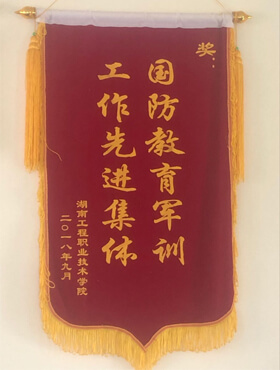 奖:
国防教育军训
工作先进集体
湖南工程职业技术学院
二〇一八年九月